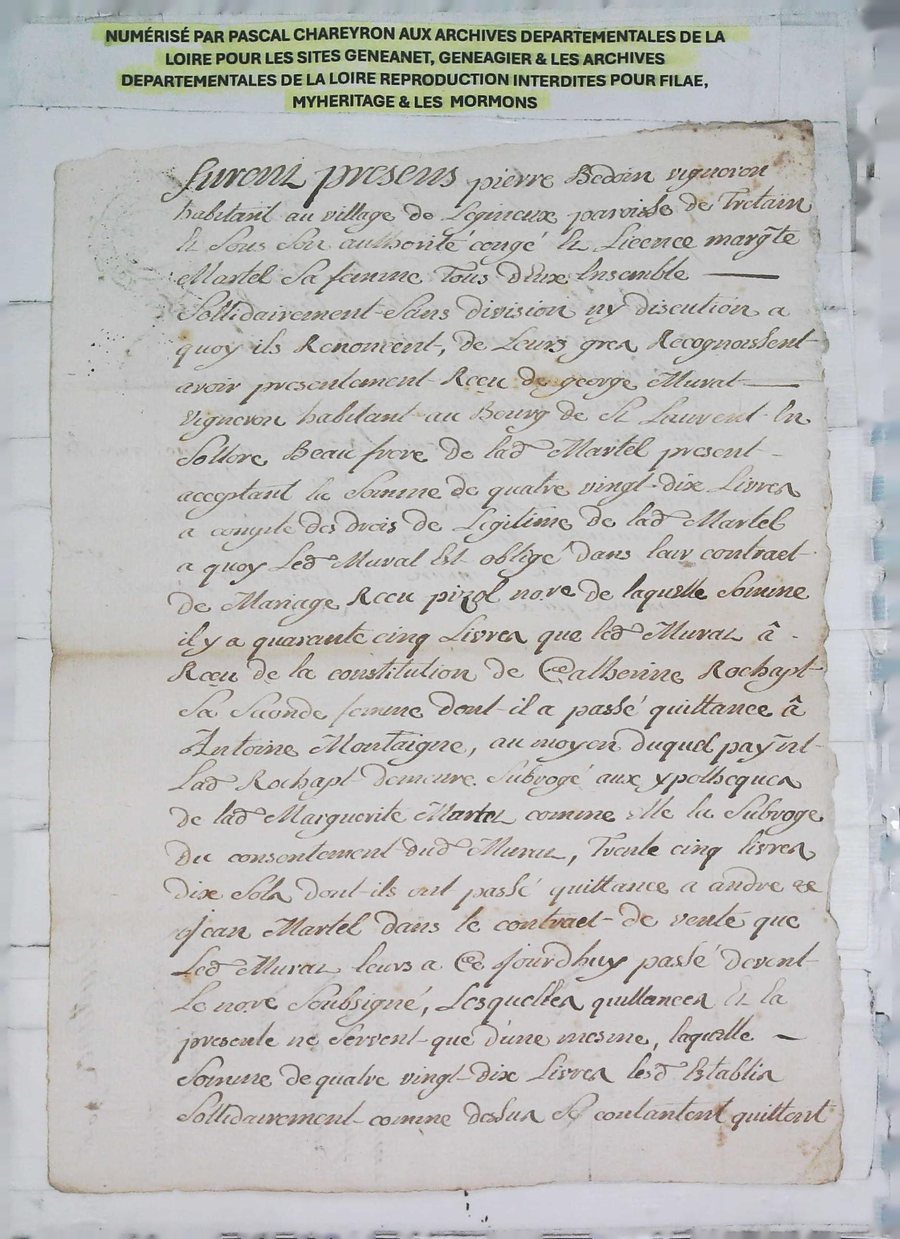 NUMÉRISÉ PAR PASCAL CHAREYRON AUX ARCHIVES DEPARTEMENTALES DE LA
LOIRE POUR LES SITES GENEANET, GENEAGIER & LES ARCHIVES
DEPARTEMENTALES DE LA LOIRE REPRODUCTION INTERDITES POUR FILAE,
MYHERITAGE & LES MORMONS
furent presens pierre Bedoin vigneron
habitant au village de Legineux paroisse de Tretain
Et sous son authorité congé Et Licence margte
Martel sa femme Tous dEux Ensemble
Sollidairement sans division ny discution a
quoy ils Renoncent, de Leurs grea Recognoissent
avoir presentement Receu de george Murat
vigneron habitant au Bourg de St Laurent En
Sollore Beau frere de lad Martel present
aceptant la Somme de quatre vingt dix Livres
a compte des drois de Legitime de lad Martel
a quoy Led Murat Est obligé dans leur contract
de Mariage Receu pizol nore de laquelle somme
il y a quarante cinq Livres que led Murat â
Receu de la constitution de Catherine Rochapt
Sa Seconde femme dont il a passé quittance â
Antoine Montaigne, au moyen duquel paymt
Lad Rochapt demeure Subrogé aux ypotheques
de lad Marguerite Martel comme elle la Subroge
Du consentement dud Murat, Trente cinq livres
dix Sols dont ils ont passé quittance a andre et
Jean Martel dans le contract de vente que
Led Murat leurs a Ce jourdhuy passé devent
Le nore Soubsigné, Lesquelles quittances Et la
presente ne servent que d'une mesme, laquelle
Somme de quatre vingt dix Livres lesd Establis
Sollidairement comme dessus Se contantent quittent